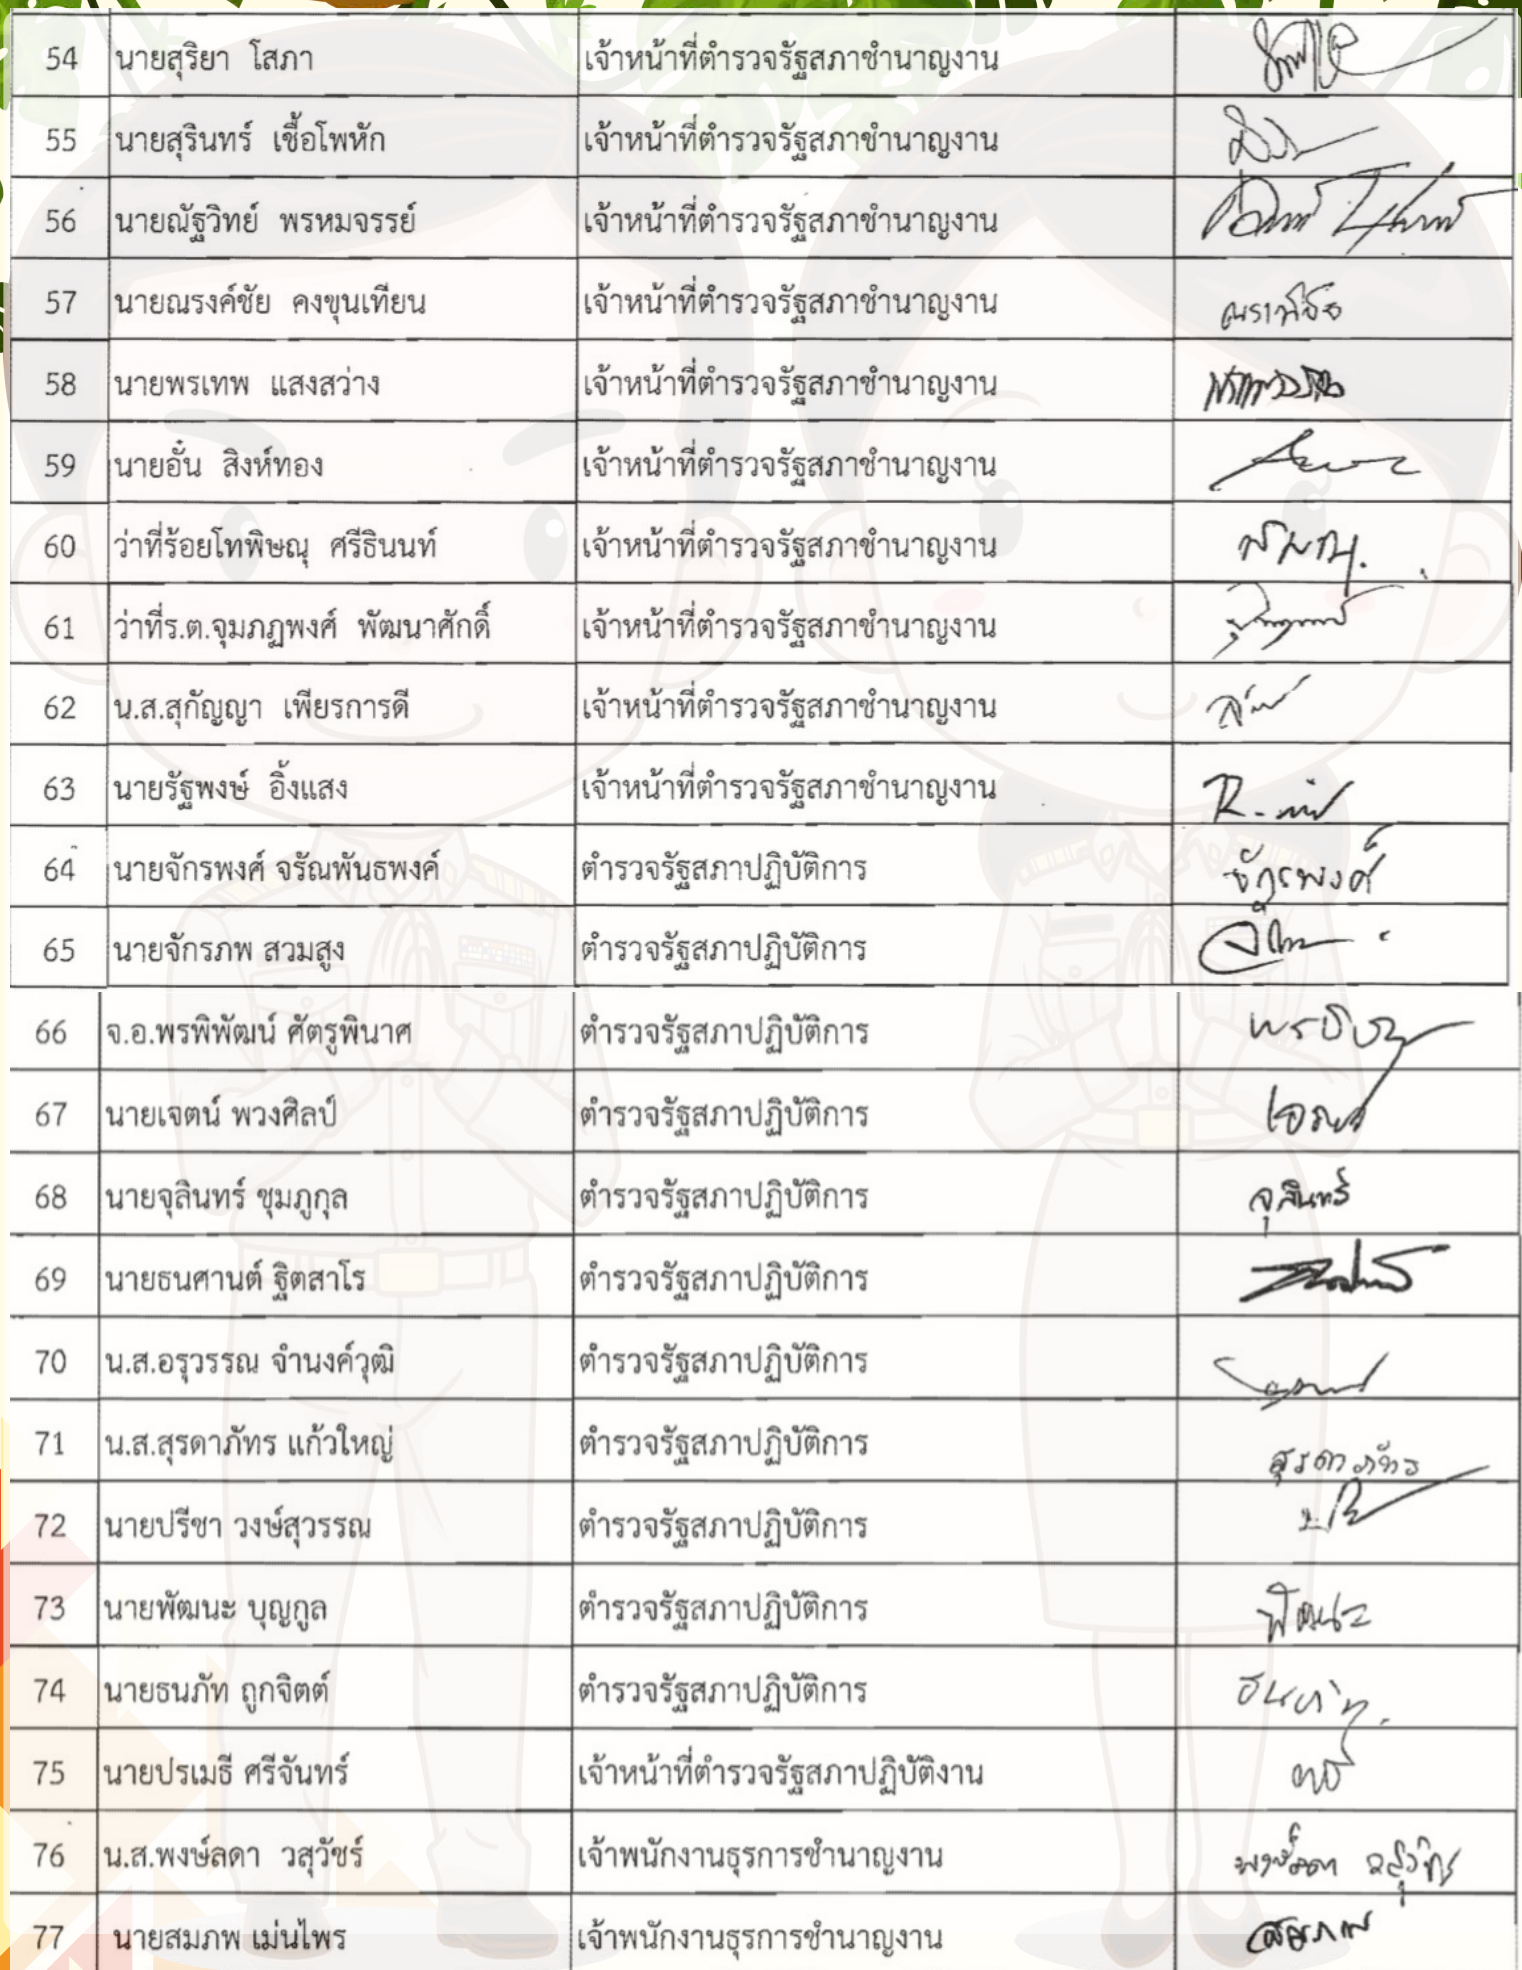 54 นายสุริยา โสภา เจ้าหน้าที่ตำรวจรัฐสภาชำนาญงาน
55 นายสุรินทร์ เชื้อโพหัก เจ้าหน้าที่ตำรวจรัฐสภาชำนาญงาน
56 นายณัฐวิทย์ พรหมจรรย์ เจ้าหน้าที่ตำรวจรัฐสภาชำนาญงาน
57 นายณรงค์ชัย คงขุนเทียน เจ้าหน้าที่ตำรวจรัฐสภาชำนาญงาน
58 นายพรเทพ แสงสว่าง เจ้าหน้าที่ตำรวจรัฐสภาชำนาญงาน
59 นายอั๋น สิงห์ทอง เจ้าหน้าที่ตำรวจรัฐสภาชำนาญงาน
60 ว่าที่ร้อยโทพิษณุ ศรีธินนท์ เจ้าหน้าที่ตำรวจรัฐสภาชำนาญงาน
61 ว่าที่ร.ต.จุมภฏพงศ์ พัฒนาศักดิ์ เจ้าหน้าที่ตำรวจรัฐสภาชำนาญงาน
62 น.ส.สุกัญญา เพียรการดี เจ้าหน้าที่ตำรวจรัฐสภาชำนาญงาน
63 นายรัฐพงษ์ อิ้งแสง เจ้าหน้าที่ตำรวจรัฐสภาชำนาญงาน
64 นายจักรพงศ์ จรัณพันธพงค์ ตำรวจรัฐสภาปฏิบัติการ จักรพงศ์
65 นายจักรภพ สวมสูง ตำรวจรัฐสภาปฏิบัติการ
66 จ.อ.พรพิพัฒน์ ศัตรูพินาศ ตำรวจรัฐสภาปฏิบัติการ
67 นายเจตน์ พวงศิลป์ ตำรวจรัฐสภาปฏิบัติการ
68 นายจุลินทร์ ชุมภูกุล ตำรวจรัฐสภาปฏิบัติการ จุลินทร์
69 นายธนศานต์ ฐิตสาโร ตำรวจรัฐสภาปฏิบัติการ
70 น.ส.อรุวรรณ จำนงค์วุฒิ ตำรวจรัฐสภาปฏิบัติการ
71 น.ส.สุรดาภัทร แก้วใหญ่ ตำรวจรัฐสภาปฏิบัติการ สุรดาภัทร
72 นายปรีชา วงษ์สุวรรณ ตำรวจรัฐสภาปฏิบัติการ
73 นายพัฒนะ บุญกูล ตำรวจรัฐสภาปฏิบัติการ พัฒนะ
74 นายธนภัท ถูกจิตต์ ตำรวจรัฐสภาปฏิบัติการ ธนภัท
75 นายปรเมธี ศรีจันทร์ เจ้าหน้าที่ตำรวจรัฐสภาปฏิบัติงาน
76 น.ส.พงษ์ลดา วสุวัชร์ เจ้าพนักงานธุรการชำนาญงาน พงษ์ลดา วสุวัชร์
77 นายสมภพ เม่นไพร เจ้าพนักงานธุรการชำนาญงาน สมภพ